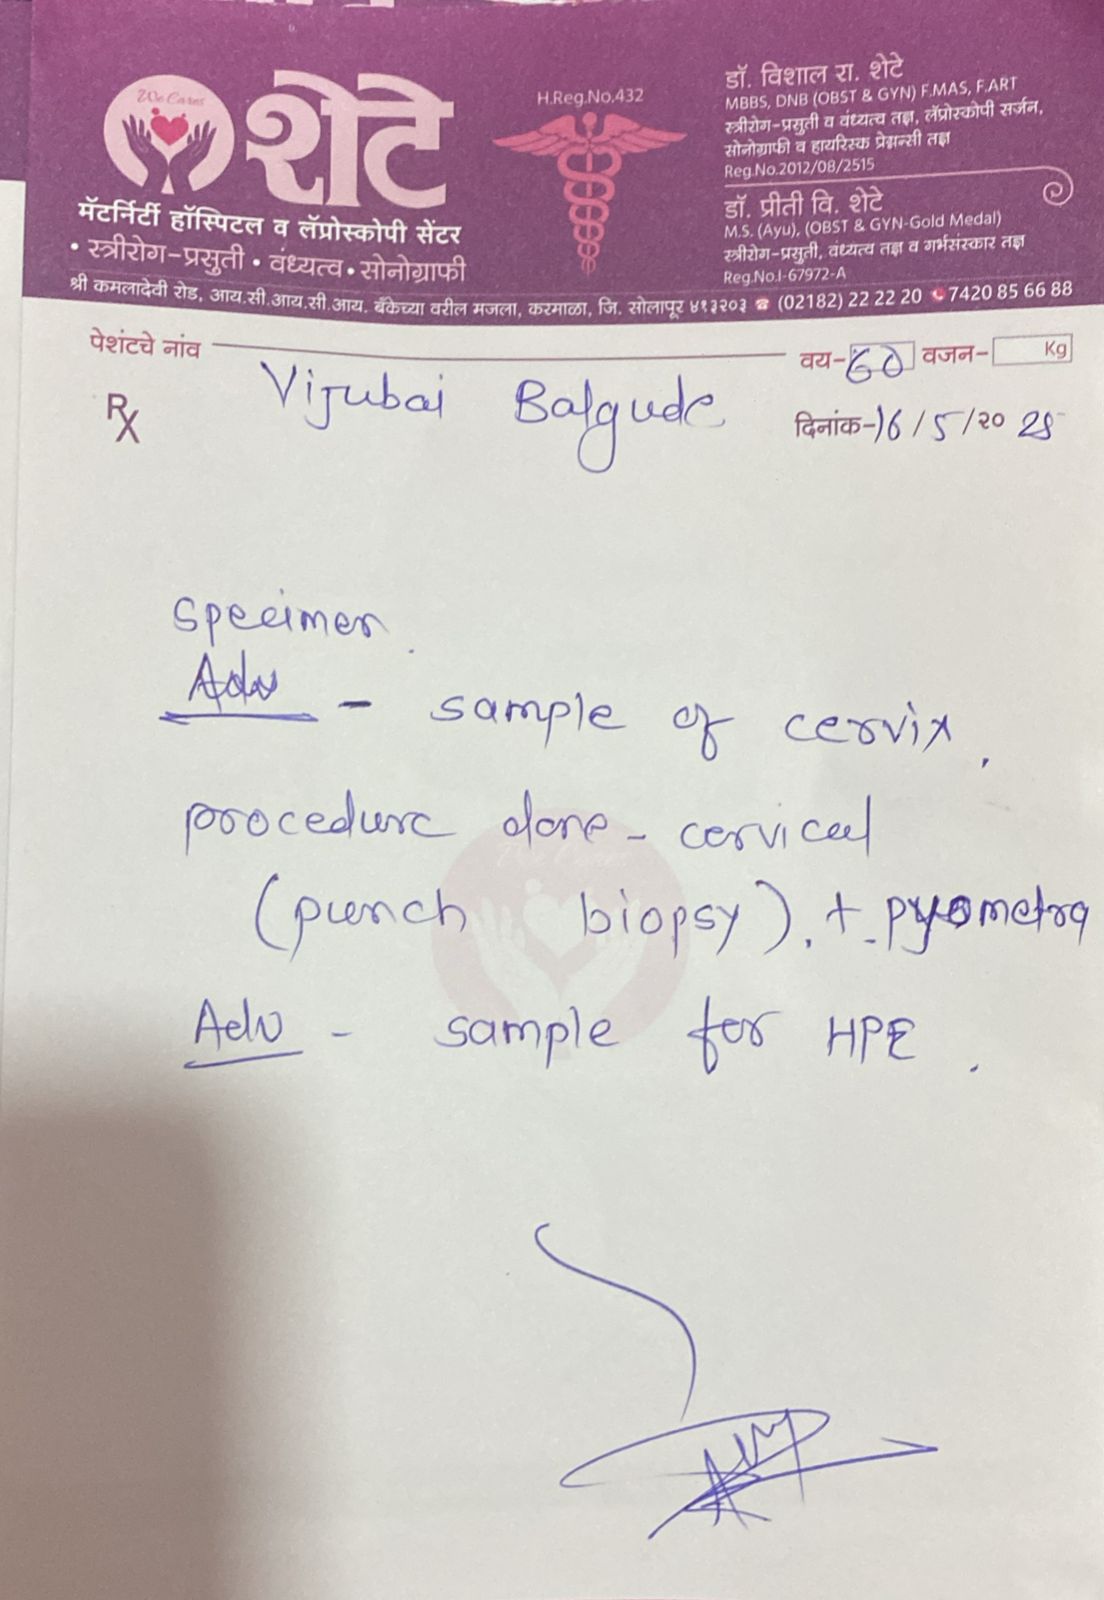 We Cares
शेटे
मॅटर्निटी हॉस्पिटल व लॅप्रोस्कोपी सेंटर
• स्त्रीरोग-प्रसुती • वंध्यत्व • सोनोग्राफी
H.Reg.No.432
डॉ. विशाल रा. शेटे
MBBS, DNB (OBST & GYN) F.MAS, F.ART
स्त्रीरोग-प्रसुती व वंध्यत्व तज्ञ, लॅप्रोस्कोपी सर्जन,
सोनोग्राफी व हायरिस्क प्रेग्नन्सी तज्ञ
Reg.No.2012/08/2515
डॉ. प्रीती वि. शेटे
M.S. (Ayu), (OBST & GYN-Gold Medal)
स्त्रीरोग-प्रसुती, वंध्यत्व तज्ञ व गर्भसंस्कार तज्ञ
Reg.No.I-67972-A
श्री कमलादेवी रोड, आय.सी.आय.सी.आय. बँकेच्या वरील मजला, करमाळा, जि. सोलापूर ४१३२०३ ☎ (02182) 22 22 20 7420 85 66 88
पेशंटचे नांव वय- 60 वजन- Kg
Rx Vijubai Balgude दिनांक- 16/5/२० 25
Specimen
Adv - sample of cervix.
procedure done - cervical
(punch biopsy). + pyometra
Adv - sample for HPE.
We Cares